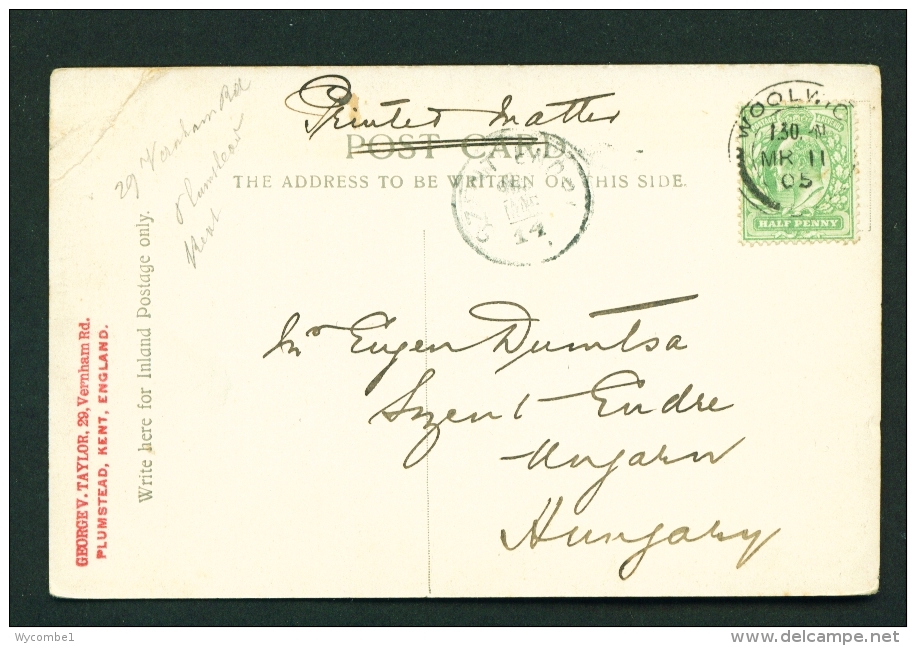 Printed Matter
POST CARD
THE ADDRESS TO BE WRITTEN ON THIS SIDE.
29 Vernham Rd
Plumstead
Kent
Write here for Inland Postage only.
GEORGE V. TAYLOR, 29, Vernham Rd.
PLUMSTEAD, KENT, ENGLAND.
WOOLWIC
MR 11
05
HALF PENNY
14
Mr Eugen Dumtsa
Szent Endre
Ungarn
Hungary
Wycombe1
delcampe.net